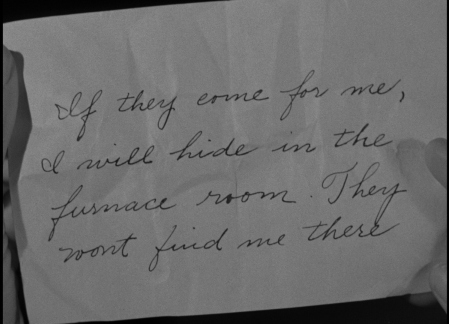 If they come for me,
I will hide in the
furnace room. They
wont find me there